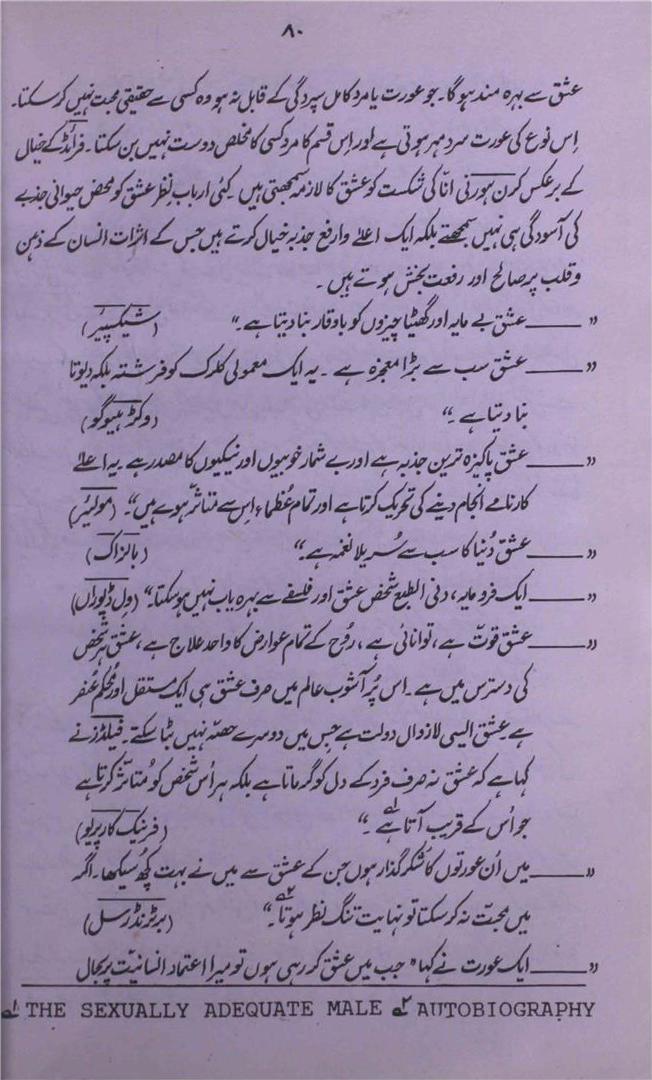 ۸۰
عشق سے بہرہ مند ہو گا۔ جو عورت یا مرد کامل سپردگی کے قابل نہ ہو وہ کسی سے حقیقی محبت نہیں کر سکتا۔
اِس نوع کی عورت سرد مہر ہوتی ہے اور اِس قسم کا مرد کسی کا مخلص دوست نہیں بن سکتا۔ فرائڈ کے خیال
کے برعکس کرن ہورنی انّا کی شکست کو عشق کا لازمہ سمجھتی ہیں۔ کئی اربابِ نظر عشق کو محض حیوانی جذبے
کی آسودگی ہی نہیں سمجھتے بلکہ ایک اعلےٰ وارفع جذبہ خیال کرتے ہیں جس کے اثرات انسان کے ذہن
و قلب پر صالح اور رفعت بخش ہوتے ہیں ۔
“ ـــــــ عشق بے مایہ اور گھٹیا چیزوں کو باوقار بنا دیتا ہے۔“ (شیکسپیئر)
“ ـــــــ عشق سب سے بڑا معجزہ ہے ۔ یہ ایک معمولی کلرک کو فرشتہ بلکہ دیوتا
بنا دیتا ہے ۔“ (وکٹر ہیوگو)
“ ـــــــ عشق پاکیزہ ترین جذبہ ہے اور بے شمار خوبیوں اور نیکیوں کا مصدر ہے ۔ یہ اعلےٰ
کارنامے انجام دینے کی تحریک کرتا ہے اور تمام عُظماء اِس سے متاثر ہوے ہیں“۔ (مولیئر)
“ ـــــــ عشق دُنیا کا سب سے سُریلا نغمہ ہے۔“ (بالزاک)
“ ـــــــ ایک فرومایہ، دنی الطبع شخص عشق اور فلسفے سے بہرہ یاب نہیں ہو سکتا۔“ (وِل ڈیوراں)
“ ـــــــ عشق قوت ہے، توانائی ہے ، رُوح کے تمام عوارض کا واحد علاج ہے، عشق ہر شخص
کی دسترس میں ہے ۔ اس پُر آشوب عالم میں صرف عشق ہی ایک مستقل اور محکم عُنصر
ہے عشق ایسی لازوال دولت ہے جس میں دوسرے حصّہ نہیں بٹا سکتے۔ فیلڈرز نے
کہا ہے کہ عشق نہ صرف فرد کے دل کو گرماتا ہے بلکہ ہر اُس شخص کو مُتاثر کرتا ہے
جو اُس کے قریب آتا ہے ۱ ۔“ (فرینک کارپریو)
“ ـــــــ میں اُن عورتوں کا شکر گذار ہوں جن کے عشق سے میں نے بہت کچھ سیکھا ۔ اگر
میں محبّت نہ کر سکتا تو نہایت تنگ نظر ہوتا ۲ ۔“ (برٹرنڈ رسل)
“ ـــــــ ایک عورت نے کہا ”جب میں عشق کر رہی ہوں تو میرا اعتماد انسانیّت پر بحال
۱ THE SEXUALLY ADEQUATE MALE ۲ AUTOBIOGRAPHY